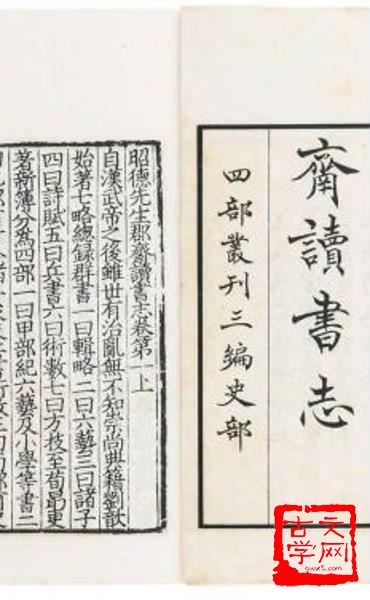 齋讀書志
四部叢刊三編史部
昭德先生郡齋讀書志卷第一上
自漢武帝之後雖世有治亂無不知崇尚典籍劉歆
始著七略總録群書一曰輯略二曰六藝三曰諸子
四曰詩賦五曰兵書六曰術數七曰方技至荀勗更
著新簿分爲四部一曰甲部紀六藝及小學等書二
古文
学网
guwx5.com